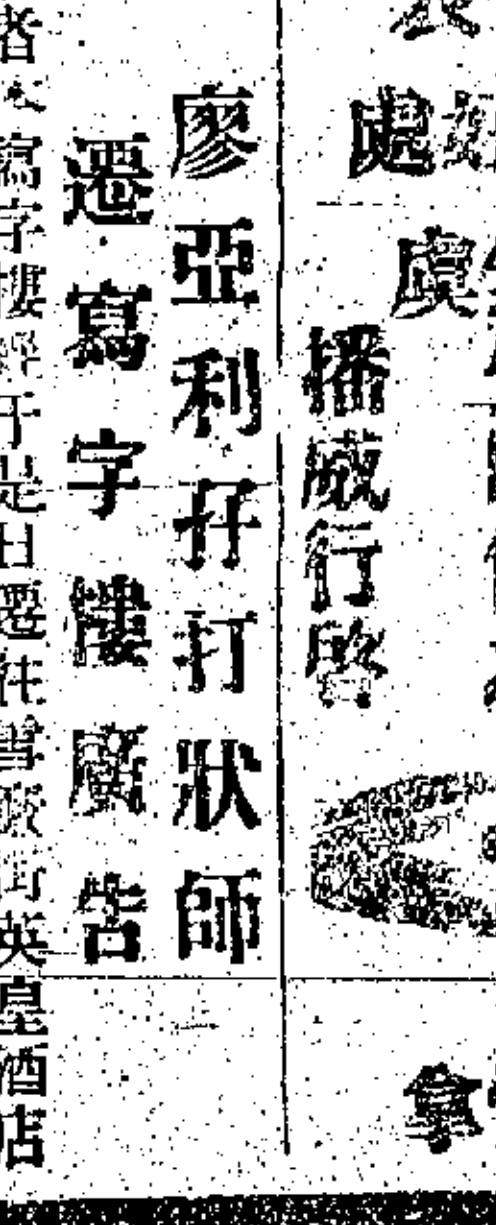 處
虞
播威行啓
拿
廖亞利孖打狀師
遷寫字樓廣告
者本寫字樓經于是日遷往雪廠街英皇酒店